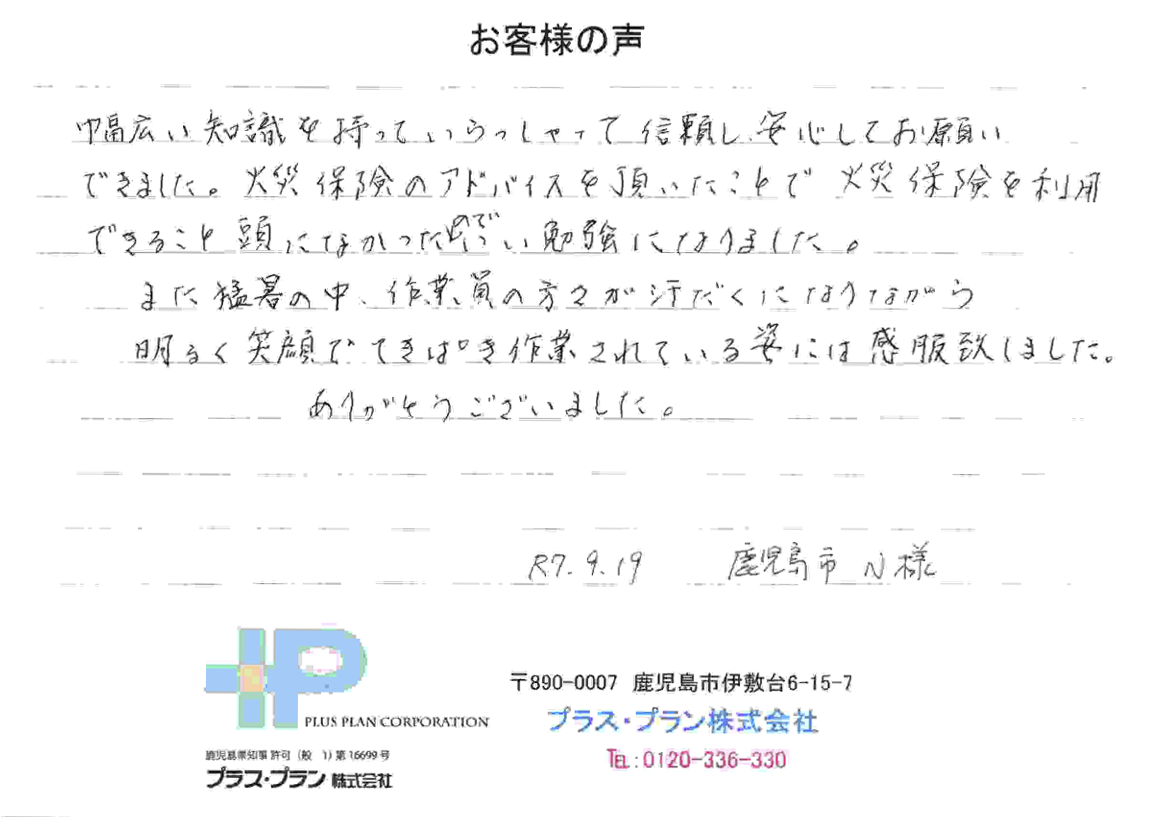 お客様の声
幅広い知識を持っていらっしゃって信頼し、安心してお願い
できました。火災保険のアドバイスを頂いたことで火災保険を利用
できること頭になかったのでい勉強になりました。
また猛暑の中、作業員の方々が汗だくになりながら
明るく笑顔でてきぱき作業されている姿には感服致しました。
ありがとうございました。
R7.9.19 鹿児島市 N様
PLUS PLAN CORPORATION
鹿児島県知事 許可 (般 1) 第16699号
プラス・プラン 株式会社
〒890-0007 鹿児島市伊敷台6-15-7
プラス・プラン株式会社
TEL:0120-336-330